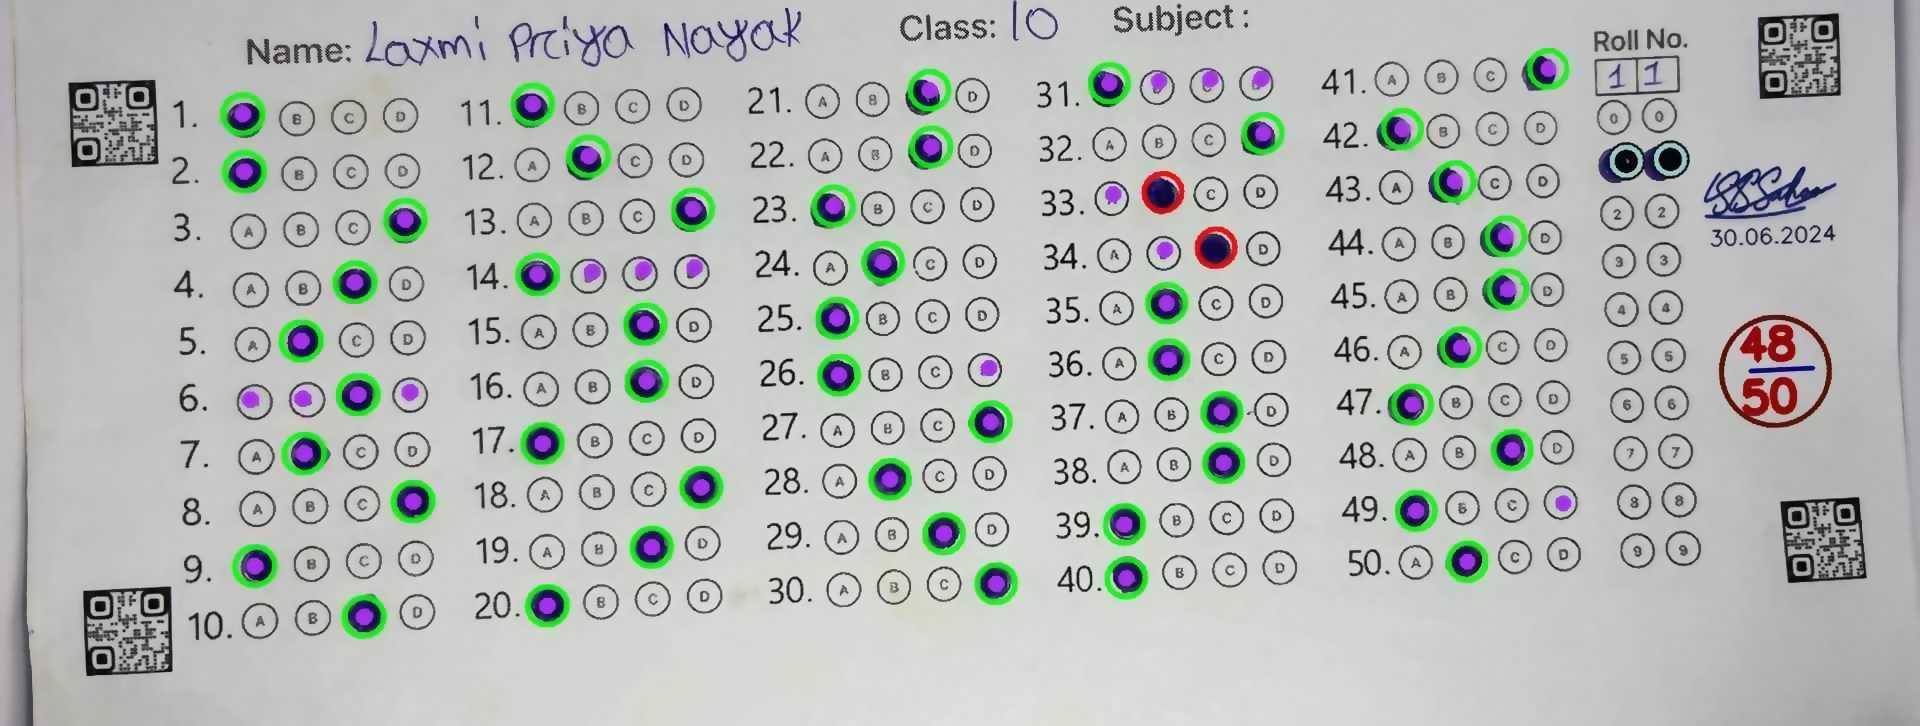 Name: Laxmi Priya Nayak Class: 10 Subject :
1. B C D
2. B C D
3. A B C
4. A B D
5. A C D
6.
7. A C D
8. A B C
9. B C D
10. A B D
11. B C D
12. A C D
13. A B C
14.
15. A B D
16. A B D
17. B C D
18. A B C
19. A B D
20. B C D
21. A B D
22. A B D
23. B C D
24. A C D
25. B C D
26. B C
27. A B C
28. A C D
29. A B D
30. A B C
31.
32. A B C
33. C D
34. A D
35. A C D
36. A C D
37. A B D
38. A B D
39. B C D
40. B C D
41. A B C
42. B C D
43. A C D
44. A B D
45. A B D
46. A C D
47. B C D
48. A B D
49. B C
50. A C D
Roll No.
1 1
0 0
2 2
3 3
4 4
5 5
6 6
7 7
8 8
9 9
30.06.2024
48
50